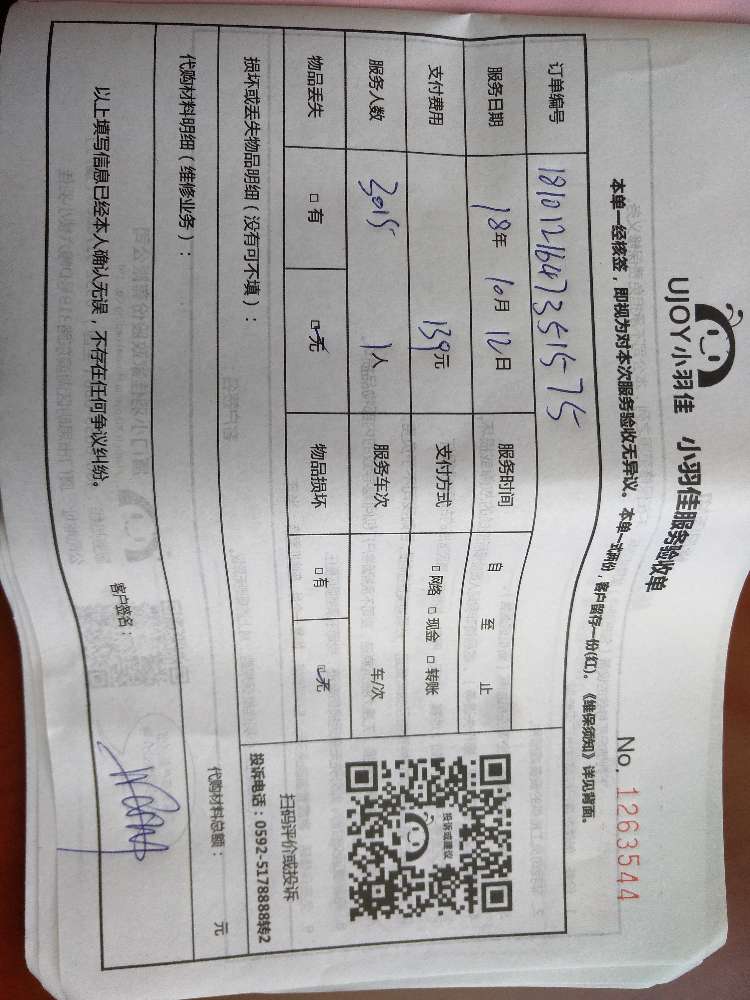 UJOY小羽佳 小羽佳服务验收单
No. 1263544
本单一经核签，即视为对本次服务验收无异议。本单一式两份，客户留存一份(红)。《维保须知》详见背面。
订单编号 1810121647351575
服务日期 18年 10月 12日 服务时间 自 至 止
支付费用 139元 支付方式 □网络 □现金 □转账
服务人数 3015 1人 服务车次 车/次
物品丢失 □有 □无 物品损坏 □有 □无
投诉或建议
扫码评价或投诉
投诉电话：0592-5178888转2
损坏或丢失物品明细（没有可不填）：
代购材料明细（维修业务）： 代购材料总额： 元
以上填写信息已经本人确认无误，不存在任何争议纠纷。
客户签名：